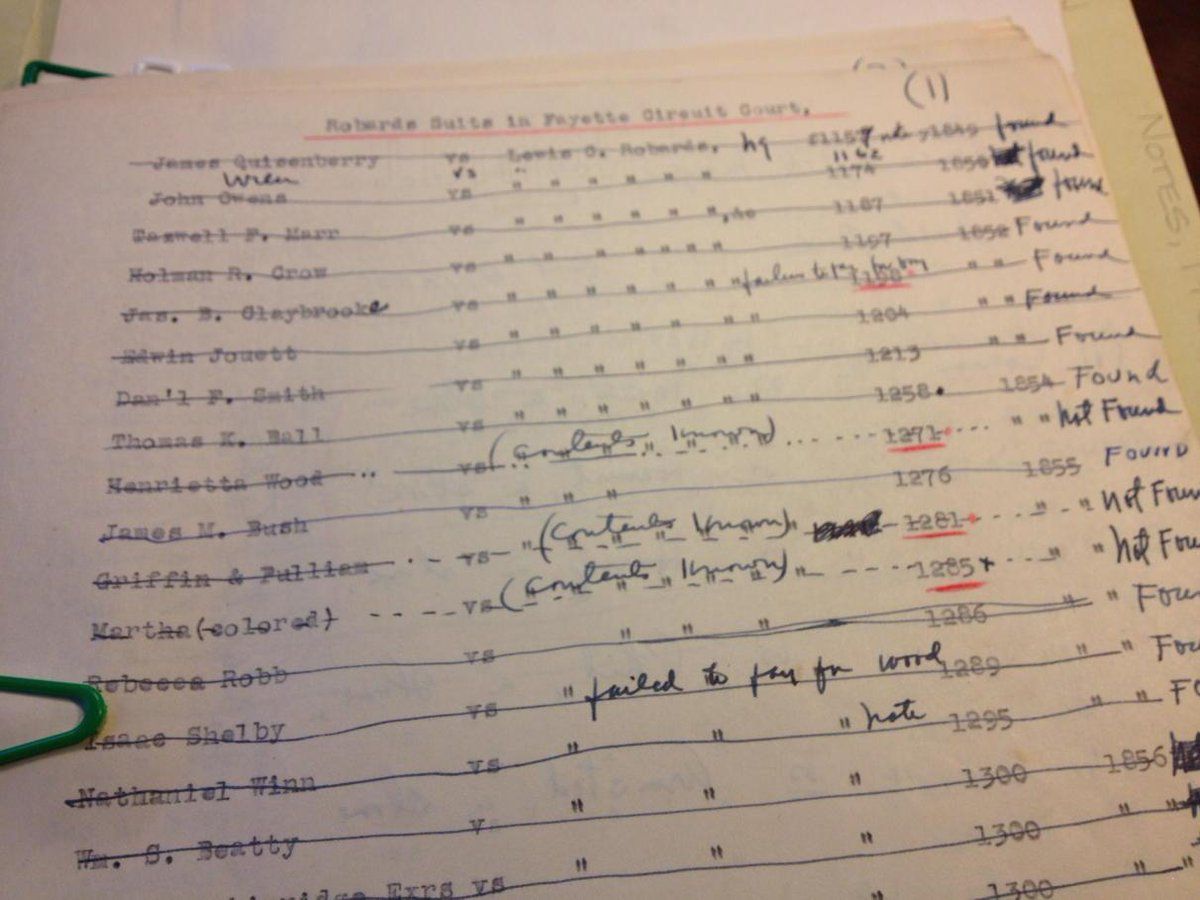 (1)
Robards Suits in Fayette Circuit Court.
James Quisenberry vs Lewis C. Robards. 1157 note 1849 found
Wren vs " 1162
John Owens vs " " " " " " 1174 1850 found
Taswell F. Marr vs " " " " " " 1187 1851 found
Holman R. Crow vs " " " " " " 1197 1852 Found
Jas. B. Claybrooke vs " " " " " " failure to pay for " " Found
Edwin Jouett vs " " " " " " " 1204 " " Found
Dan'l F. Smith vs " " " " " " " 1213 " " Found
Thomas K. Ball vs " " " " " " " 1258. 1854 Found
Henrietta Wood .. vs (Contents Known) .... 1271 .... " " Not Found
James M. Bush vs " " " 1276 1855 Found
Griffin & Pulliam vs " (Contents Known) " 1281 " " Not Foun
Martha (colored) ---- vs (Contents Known) " 1285 " " Not Fou
Rebecca Robb vs " " " 1286 " Foun
Isaac Shelby vs " failed to pay for wood 1289 " " Fou
Nathaniel Winn vs " " " note 1295 " " Fo
Wm. S. Beatty v " " " 1300 1856
Exrs vs " " " 1300 " "
1300 " "
NOTES,